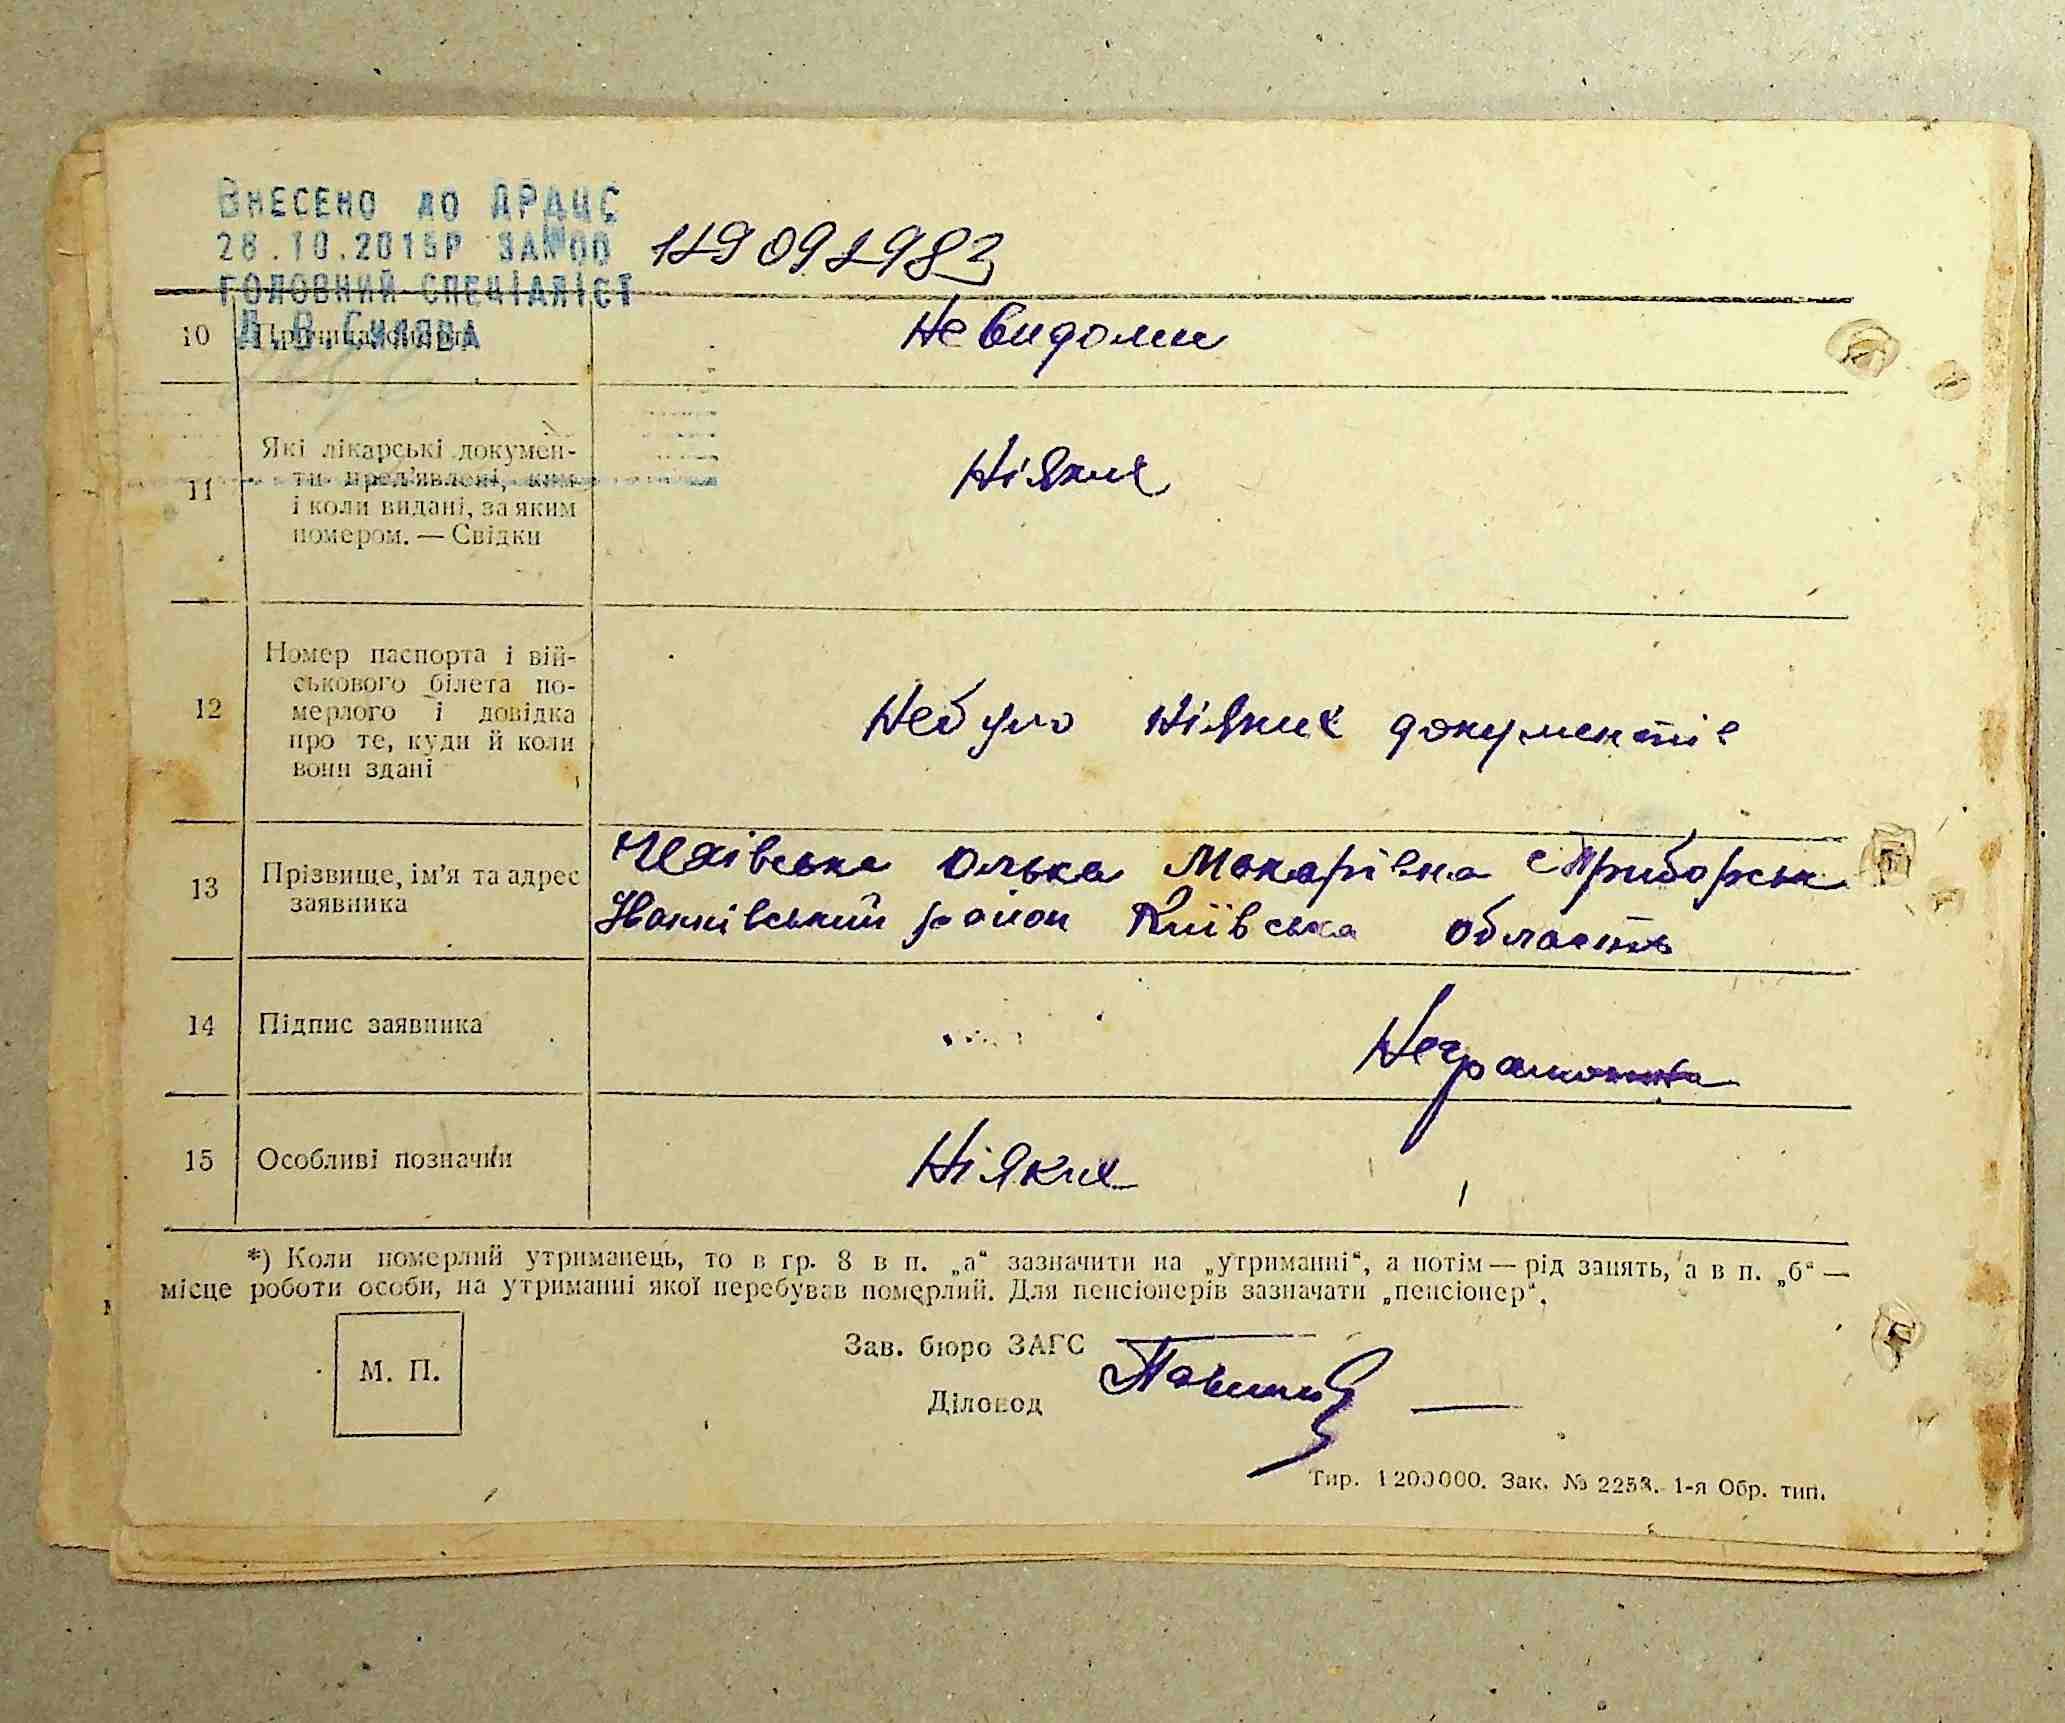 ВНЕСЕНО ДО ДРАЦС
28.10.2015Р ЗА №00
149091983
ГОЛОВНИЙ СПЕЦІАЛІСТ
10 Причина Невидоми
11 Які лікарські докумен-
ти пред'явлені, ким
і коли видані, за яким
номером. — Свідки
Ніяких
12 Номер паспорта і вій-
ськового білета по-
мерлого і довідка
про те, куди й коли
вони здані
Небуло ніяких документів
13 Прізвище, ім'я та адрес
заявника
Олька Макарівна с Приборськ
Іванківський район Київська область
14 Підпис заявника
Неграмотна
15 Особливі позначки
Ніяких
*) Коли померлий утриманець, то в гр. 8 в п. „а“ зазначити на „утриманні“, а потім — рід занять, а в п. „б“ —
місце роботи особи, на утриманні якої перебував померлий. Для пенсіонерів зазначати „пенсіонер“.
М. П.
Зав. бюро ЗАГС
Діловод
Тир. 1200000. Зак. № 2253. 1-я Обр. тип.